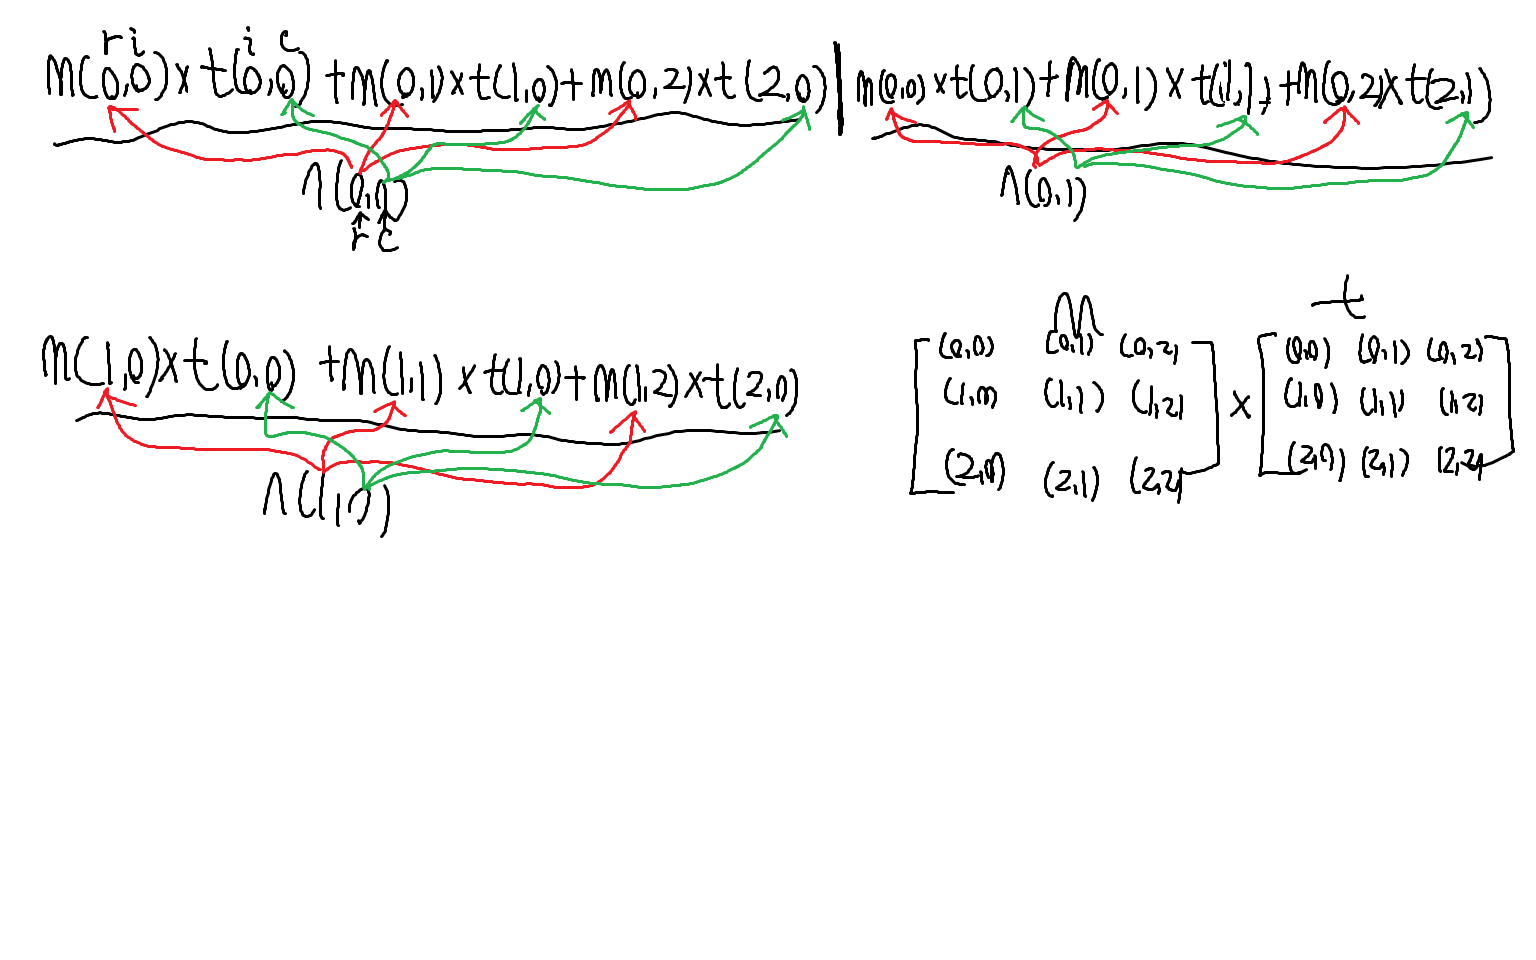 r i i c
m(0,0)x t(0,0) +m(0,1)xt(1,0)+m(0,2)xt(2,0) | m(0,0)xt(0,1)+m(0,1)xt(1,1)+m(0,2)xt(2,1)
n(0,0) n(0,1)
r c
m t
m(1,0)xt(0,0) +m(1,1)xt(1,0)+m(1,2)xt(2,0)
n(1,0)
(0,0) (0,1) (0,2) (0,0) (0,1) (0,2)
(1,0) (1,1) (1,2) x (1,0) (1,1) (1,2)
(2,0) (2,1) (2,2) (2,0) (2,1) (2,2)